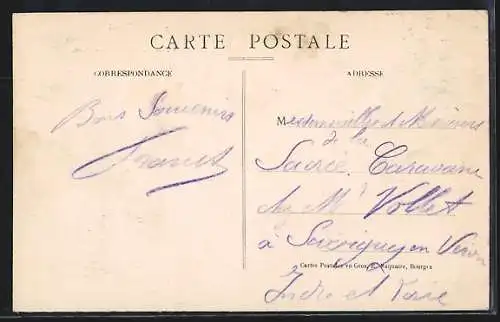 CARTE POSTALE
CORRESPONDANCE
ADRESSE
Bons Souvenirs
Mesdemoiselles et Messieurs
de la
Sacrée Caravane
Chez Mr Vollet
à Savigny en Veron
Cartes Postales en Gros, Bourges
Indre et Loire